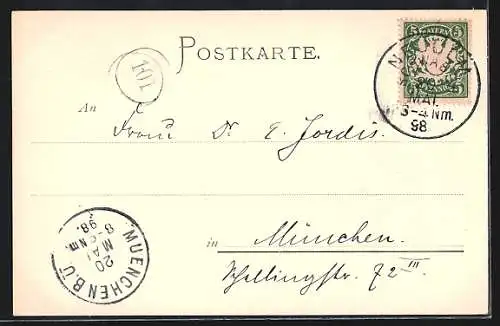 BAYERN
5 5
PFENNIG
MAI.
3-4 Nm.
98
POSTKARTE.
101
An
Frau Dr. E. Jordis.
in München.
Schellingstr. 72 III
MUENCHEN B.Ü.
20
MAI
8-9 Nm.
98.